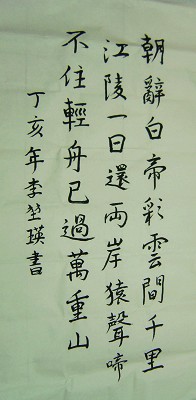 朝辭白帝彩雲間千里
江陵一日還兩岸猿聲啼
不住輕舟已過萬重山
丁亥年李堃瑛書